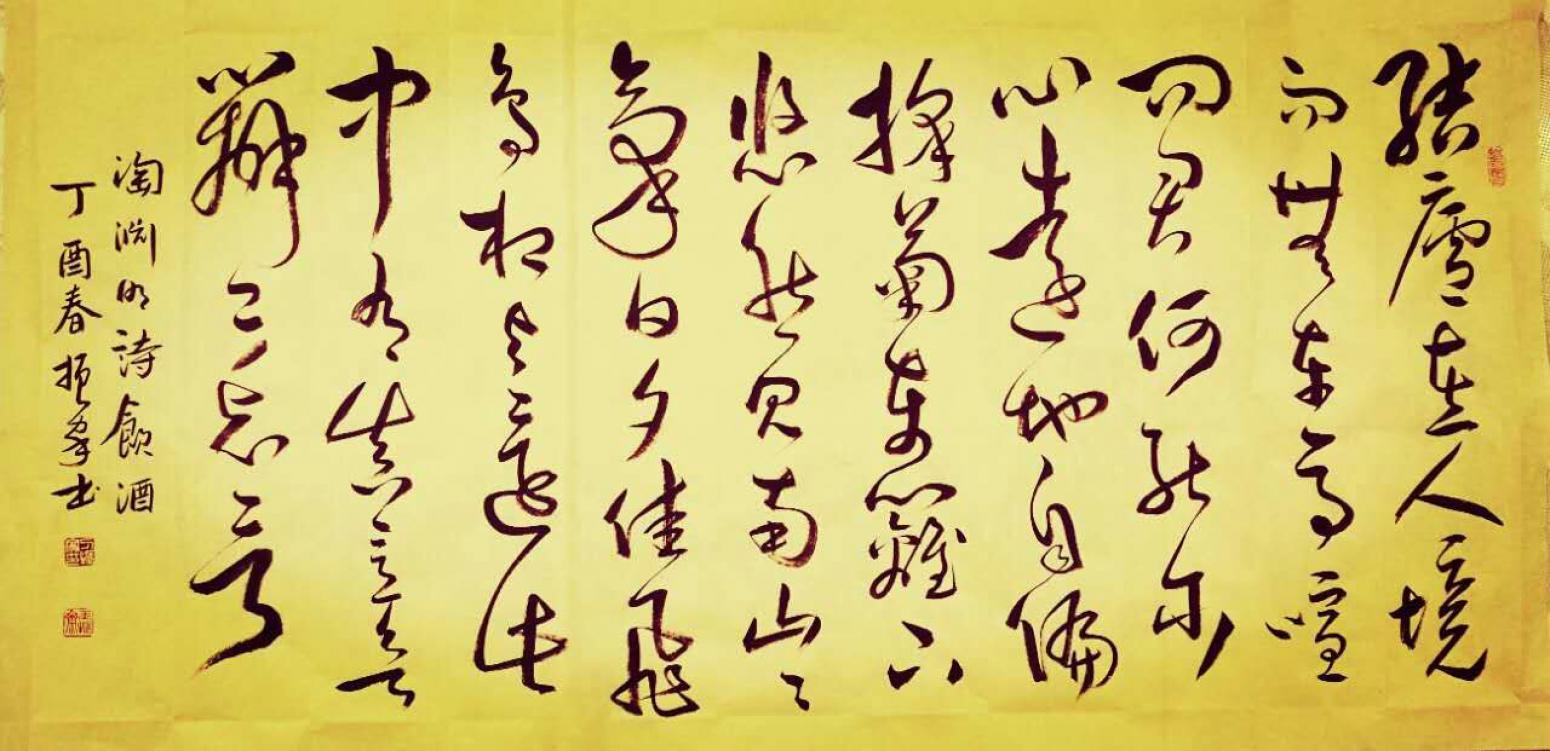 結廬在人境
而無車馬喧
问君何能尔
心遠地自偏
採菊東籬下
悠然见南山々
氣日夕佳飛
鳥相与還此
中有真意欲
辨已忘言
淘渊明詩飲酒
丁酉春振书